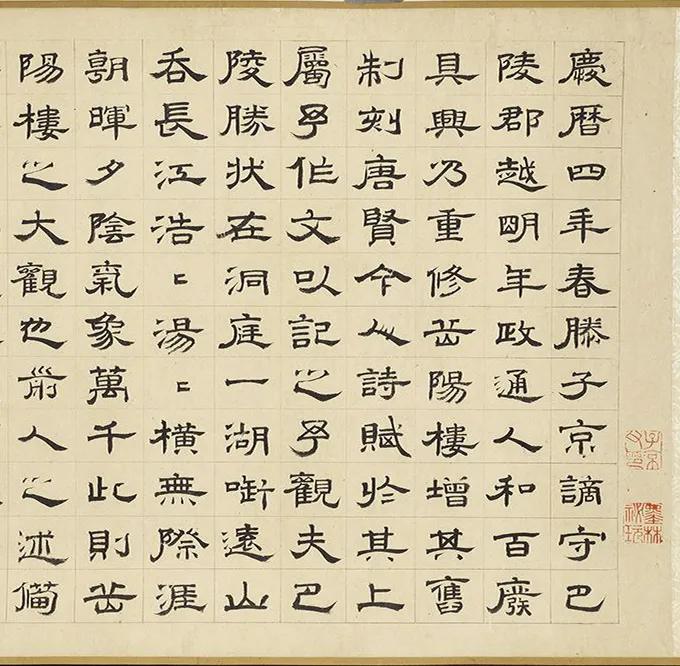 慶曆四年春滕子京謫守巴
陵郡越明年政通人和百廢
具興乃重修岳陽樓增其舊
制刻唐賢今人詩賦於其上
屬予作文以記之予觀夫巴
陵勝狀在洞庭一湖銜遠山
吞長江浩〻湯〻橫無際涯
朝暉夕陰氣象萬千此則岳
陽樓之大觀也前人之述備
子京父印
墨林祕玩